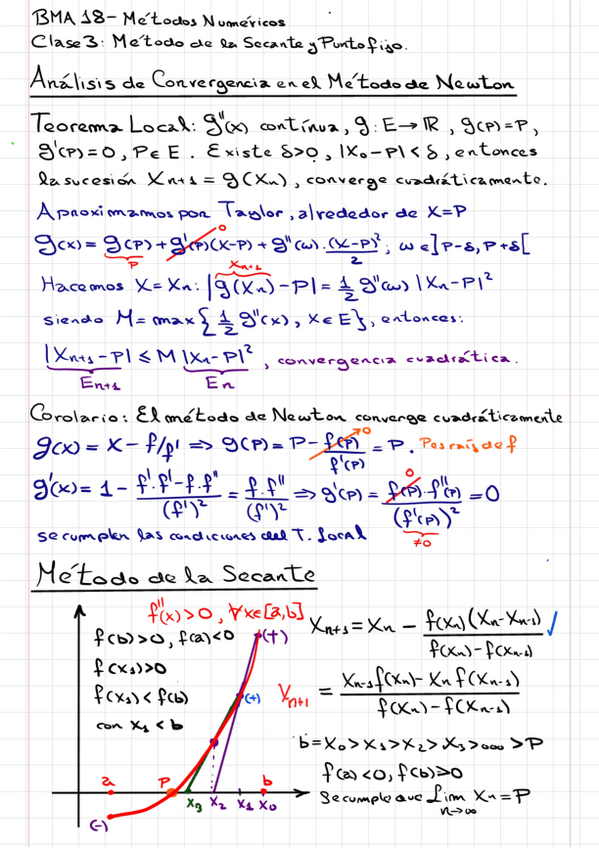 BMA 18 - Métodos Numéricos
Clase 3: Método de la Secante y Punto fijo.
Análisis de Convergencia en el Método de Newton
Teorema Local: g''(x) contínua, g: E → ℝ, g(P)=P,
g'(P)=0, P∈E. Existe δ>0, |X₀-P|<δ, entonces
la sucesión Xn+1 = g(Xn), converge cuadráticamente.
Aproximamos por Taylor, alrededor de X=P
g(x) = g(P) + g'(P)(X-P) + g''(ω)·(X-P)²/2; ω∈]P-δ, P+δ[
P 0
Xn+1
Hacemos X=Xn: |g(Xn)-P| = 1/2 g''(ω) |Xn-P|²
siendo M=max{1/2 g''(x), X∈E}, entonces:
|Xn+1-P| ≤ M |Xn-P|², convergencia cuadrática.
En+1 En
Corolario: El método de Newton converge cuadráticamente
g(x) = X - f/f' ⇒ g(P) = P - f(P)/f'(P) = P. P es raíz de f
0
g'(x) = 1 - (f'·f' - f·f'')/(f')² = f·f''/(f')² ⇒ g'(P) = f(P)·f''(P)/(f'(P))² = 0
0
≠0
se cumplen las condiciones del T. Local
Método de la Secante
f''(x)>0, ∀x∈[a,b]
f(b)>0, f(a)<0
f(x₁)>0
f(x₁)<f(b)
con x₁<b
(+)
(+)
a P X₃ X₂ X₁ X₀ b
(-)
Xn+1 = Xn - f(Xn)(Xn-Xn-1)/(f(Xn)-f(Xn-1)) ✓
Xn+1 = (Xn-1 f(Xn) - Xn f(Xn-1))/(f(Xn)-f(Xn-1))
b=X₀>X₁>X₂>X₃>...>P
f(a)<0, f(b)>0
Se cumple que Lim Xn=P
n→∞